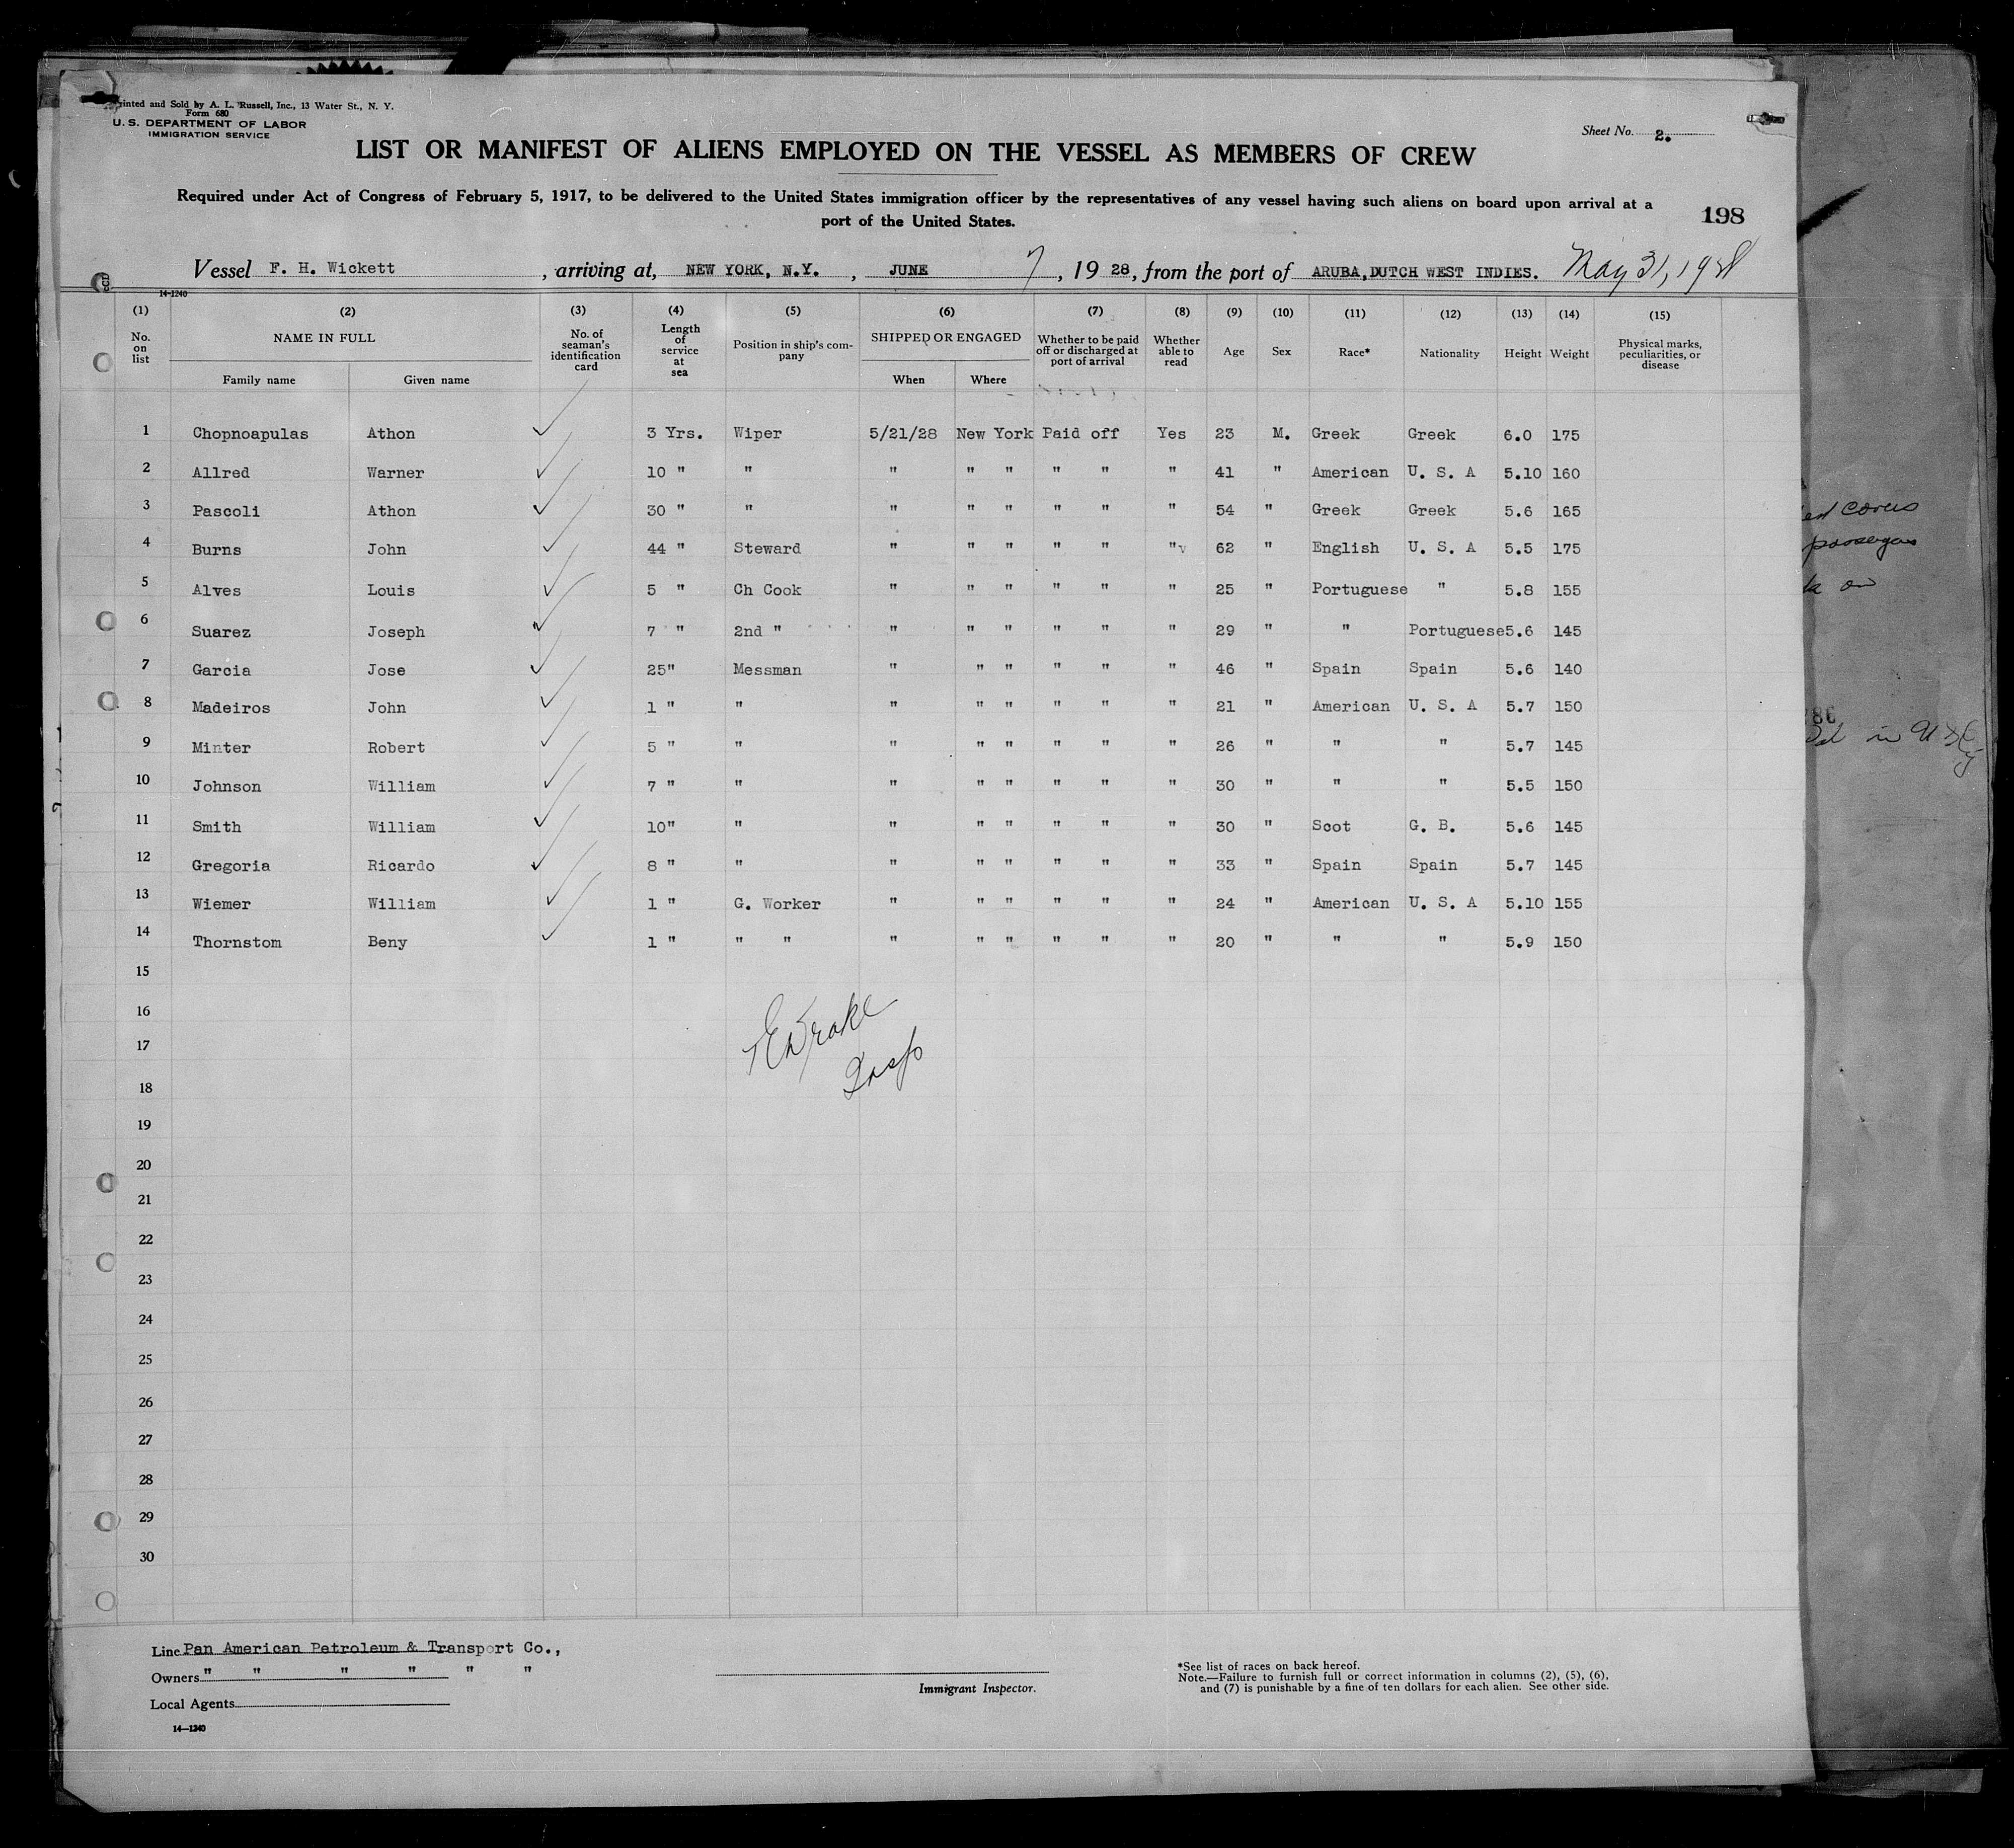 Printed and Sold by A. L. Russell, Inc., 13 Water St., N. Y.
Form 680
U. S. DEPARTMENT OF LABOR
IMMIGRATION SERVICE
Sheet No. 2.
LIST OR MANIFEST OF ALIENS EMPLOYED ON THE VESSEL AS MEMBERS OF CREW
Required under Act of Congress of February 5, 1917, to be delivered to the United States immigration officer by the representatives of any vessel having such aliens on board upon arrival at a
port of the United States.
198
Vessel F. H. Wickett, arriving at, NEW YORK, N.Y., JUNE 7, 1928, from the port of ARUBA, DUTCH WEST INDIES. May 31, 1928
14-1240
(1) (2) (3) (4) (5) (6) (7) (8) (9) (10) (11) (12) (13) (14) (15)
No. on list NAME IN FULL Family name Given name No. of seaman's identification card Length of service at sea Position in ship's company SHIPPED OR ENGAGED When Where Whether to be paid off or discharged at port of arrival Whether able to read Age Sex Race* Nationality Height Weight Physical marks, peculiarities, or disease
1 Chopnoapulas Athon 3 Yrs. Wiper 5/21/28 New York Paid off Yes 23 M. Greek Greek 6.0 175
2 Allred Warner 10 " " " " " " " " 41 " American U. S. A 5.10 160
3 Pascoli Athon 30 " " " " " " " " 54 " Greek Greek 5.6 165
4 Burns John 44 " Steward " " " " " " 62 " English U. S. A 5.5 175
5 Alves Louis 5 " Ch Cook " " " " " " 25 " Portuguese " 5.8 155
6 Suarez Joseph 7 " 2nd " " " " " " " 29 " " Portuguese 5.6 145
7 Garcia Jose 25" Messman " " " " " " 46 " Spain Spain 5.6 140
8 Madeiros John 1 " " " " " " " " 21 " American U. S. A 5.7 150
9 Minter Robert 5 " " " " " " " " 26 " " " 5.7 145
10 Johnson William 7 " " " " " " " " 30 " " " 5.5 150
11 Smith William 10" " " " " " " " 30 " Scot G. B. 5.6 145
12 Gregoria Ricardo 8 " " " " " " " " 33 " Spain Spain 5.7 145
13 Wiemer William 1 " G. Worker " " " " " " 24 " American U. S. A 5.10 155
14 Thornstom Beny 1 " " " " " " " " " 20 " " " 5.9 150
15
16
17
18
19
20
21
22
23
24
25
26
27
28
29
30
Drake
Insp
Line Pan American Petroleum & Transport Co.,
Owners " " " " " "
Local Agents
14-1240
Immigrant Inspector.
*See list of races on back hereof.
Note.—Failure to furnish full or correct information in columns (2), (5), (6),
and (7) is punishable by a fine of ten dollars for each alien. See other side.
covers
passengers
on
86
in